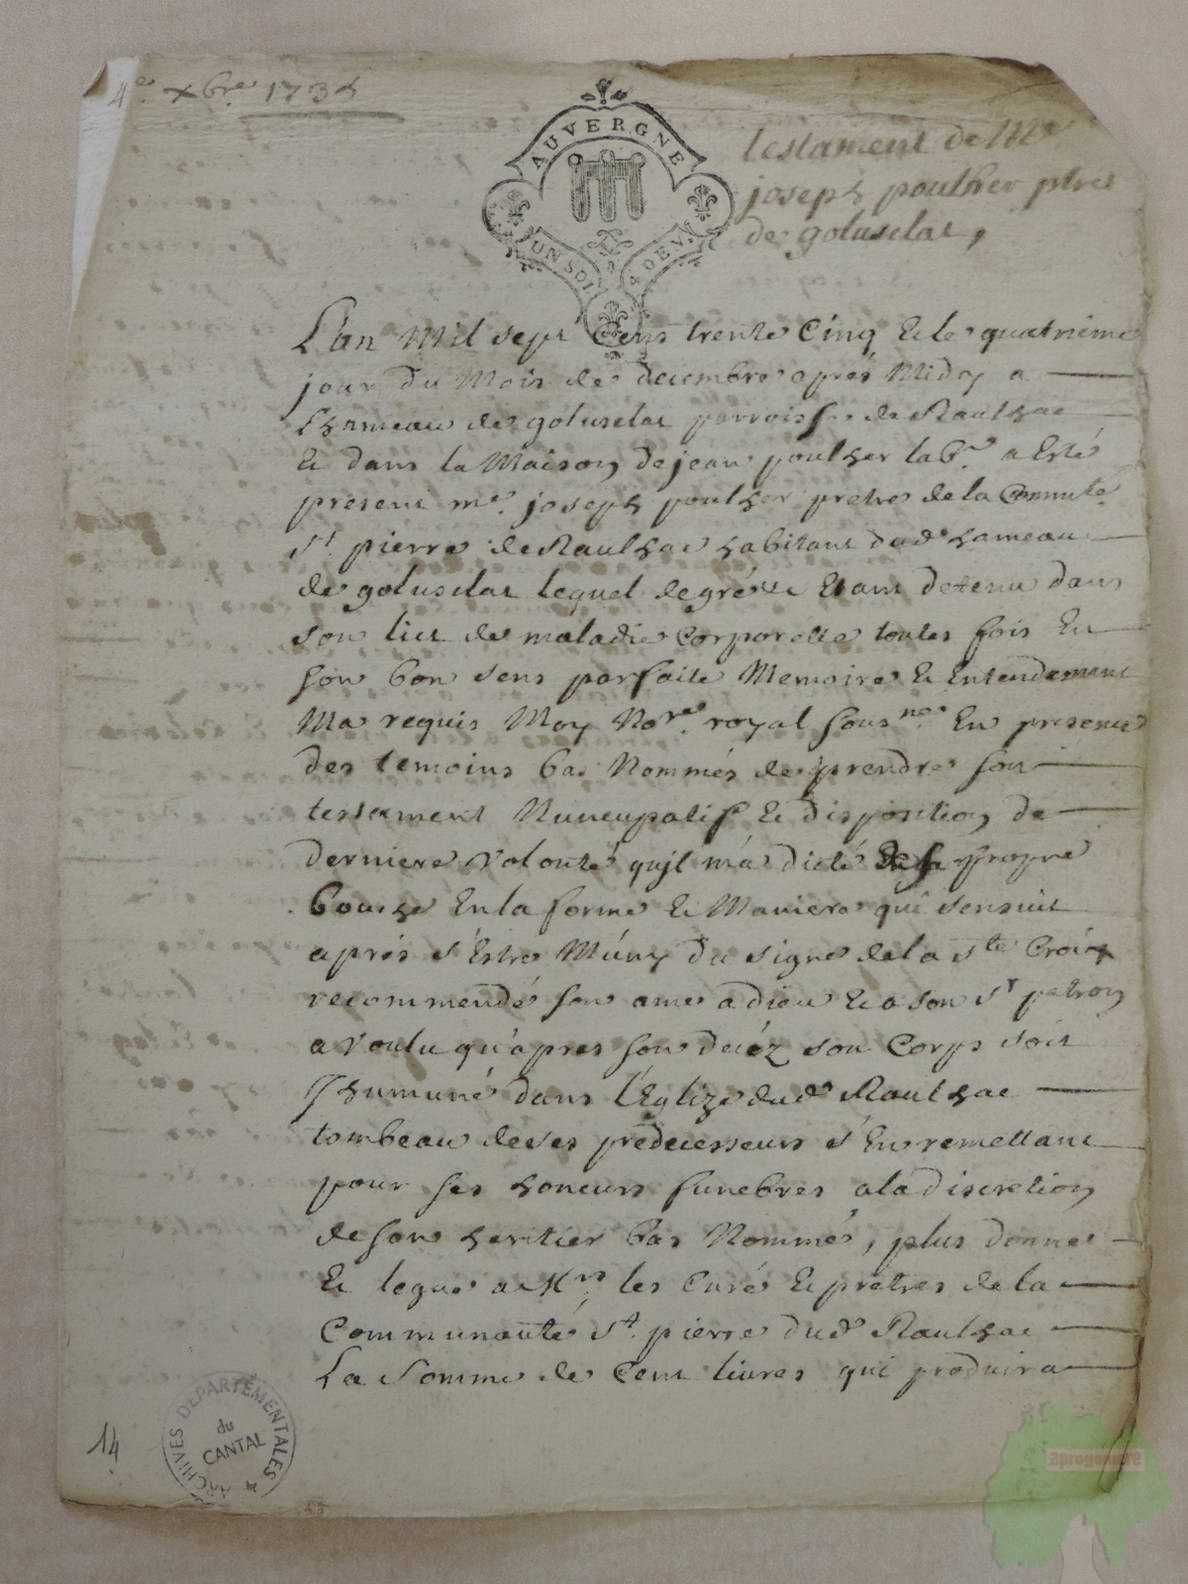 4e. xbre 1735
AUVERGNE
UN SOL
4 DEN.
testament de Me
joseph poulher ptre
de goluselat,
L'an Mil sept Cens trente Cinq & le quatrieme
jour du Mois de decembre après Midy a
Lhameau de goluselat parroisse de Raulhac
& dans la Maison de jean poulher labr. a Esté
present me. joseph poulher pretre de la Commute.
St. pierre de Raulhac habitant dud. hameau
de goluselat lequel de gré &c Etant detenu dans
son lict de maladie Corporelle toutes fois En
son bon sens parfaite Memoire & Entendement
Ma requis Moy Nore. royal sousne. En presence
des temoins bas Nommés de prendre son
testament Nuncupatif & disposition de
derniere Volonté qu'jl m'a dicté de sa propre
bouche En la forme & Maniere qui sensuit
aprés s'Estre Múny du signe de la ste Croix
recommendé son ame a dieu & a son st patron
a Voulu qu'apres son decéz son Corps soit
Jhumuné dans l'Eglize dud. Raulhac
tombeau de ses predecesseurs s'En remettant
pour ses honeurs funebres a la discretion
de son heritier bas Nommé, plus donne
& legue a Mrs. les Curé & pretres de la
Communauté st. pierre dud. Raulhac
La Somme de Cent livres qui produira
14.
ARCHIVES DÉPARTEMENTALES
du
CANTAL